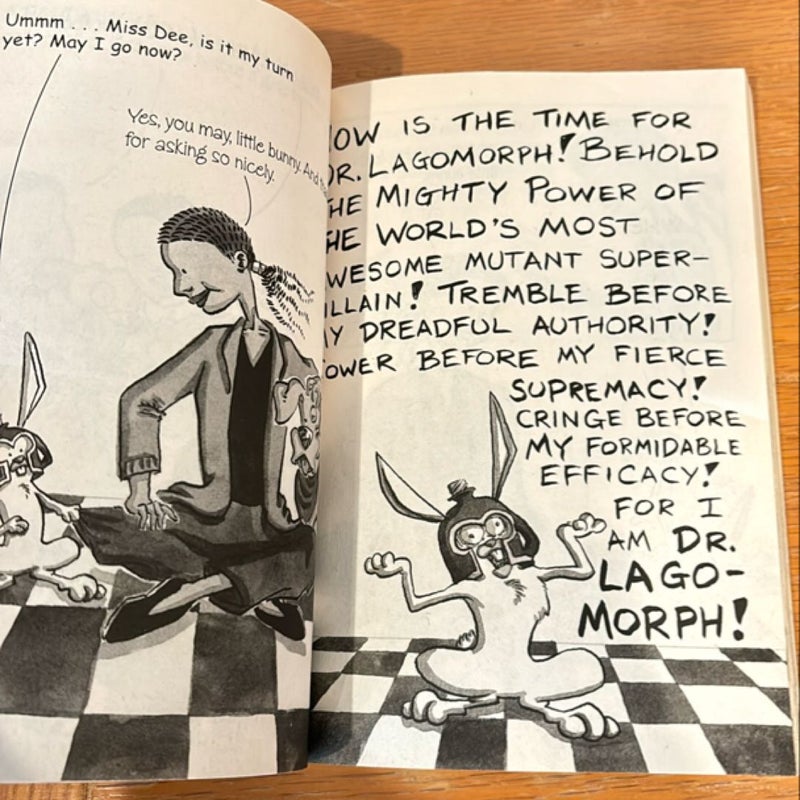 Ummm . . . Miss Dee, is it my turn
yet? May I go now?
Yes, you may, little bunny. And
for asking so nicely.
OW IS THE TIME FOR
DR. LAGOMORPH! BEHOLD
HE MIGHTY POWER OF
HE WORLD'S MOST
WESOME MUTANT SUPER-
ILLAIN! TREMBLE BEFORE
Y DREADFUL AUTHORITY!
OWER BEFORE MY FIERCE
SUPREMACY!
CRINGE BEFORE
MY FORMIDABLE
EFFICACY!
FOR I
AM DR.
LAGO-
MORPH!